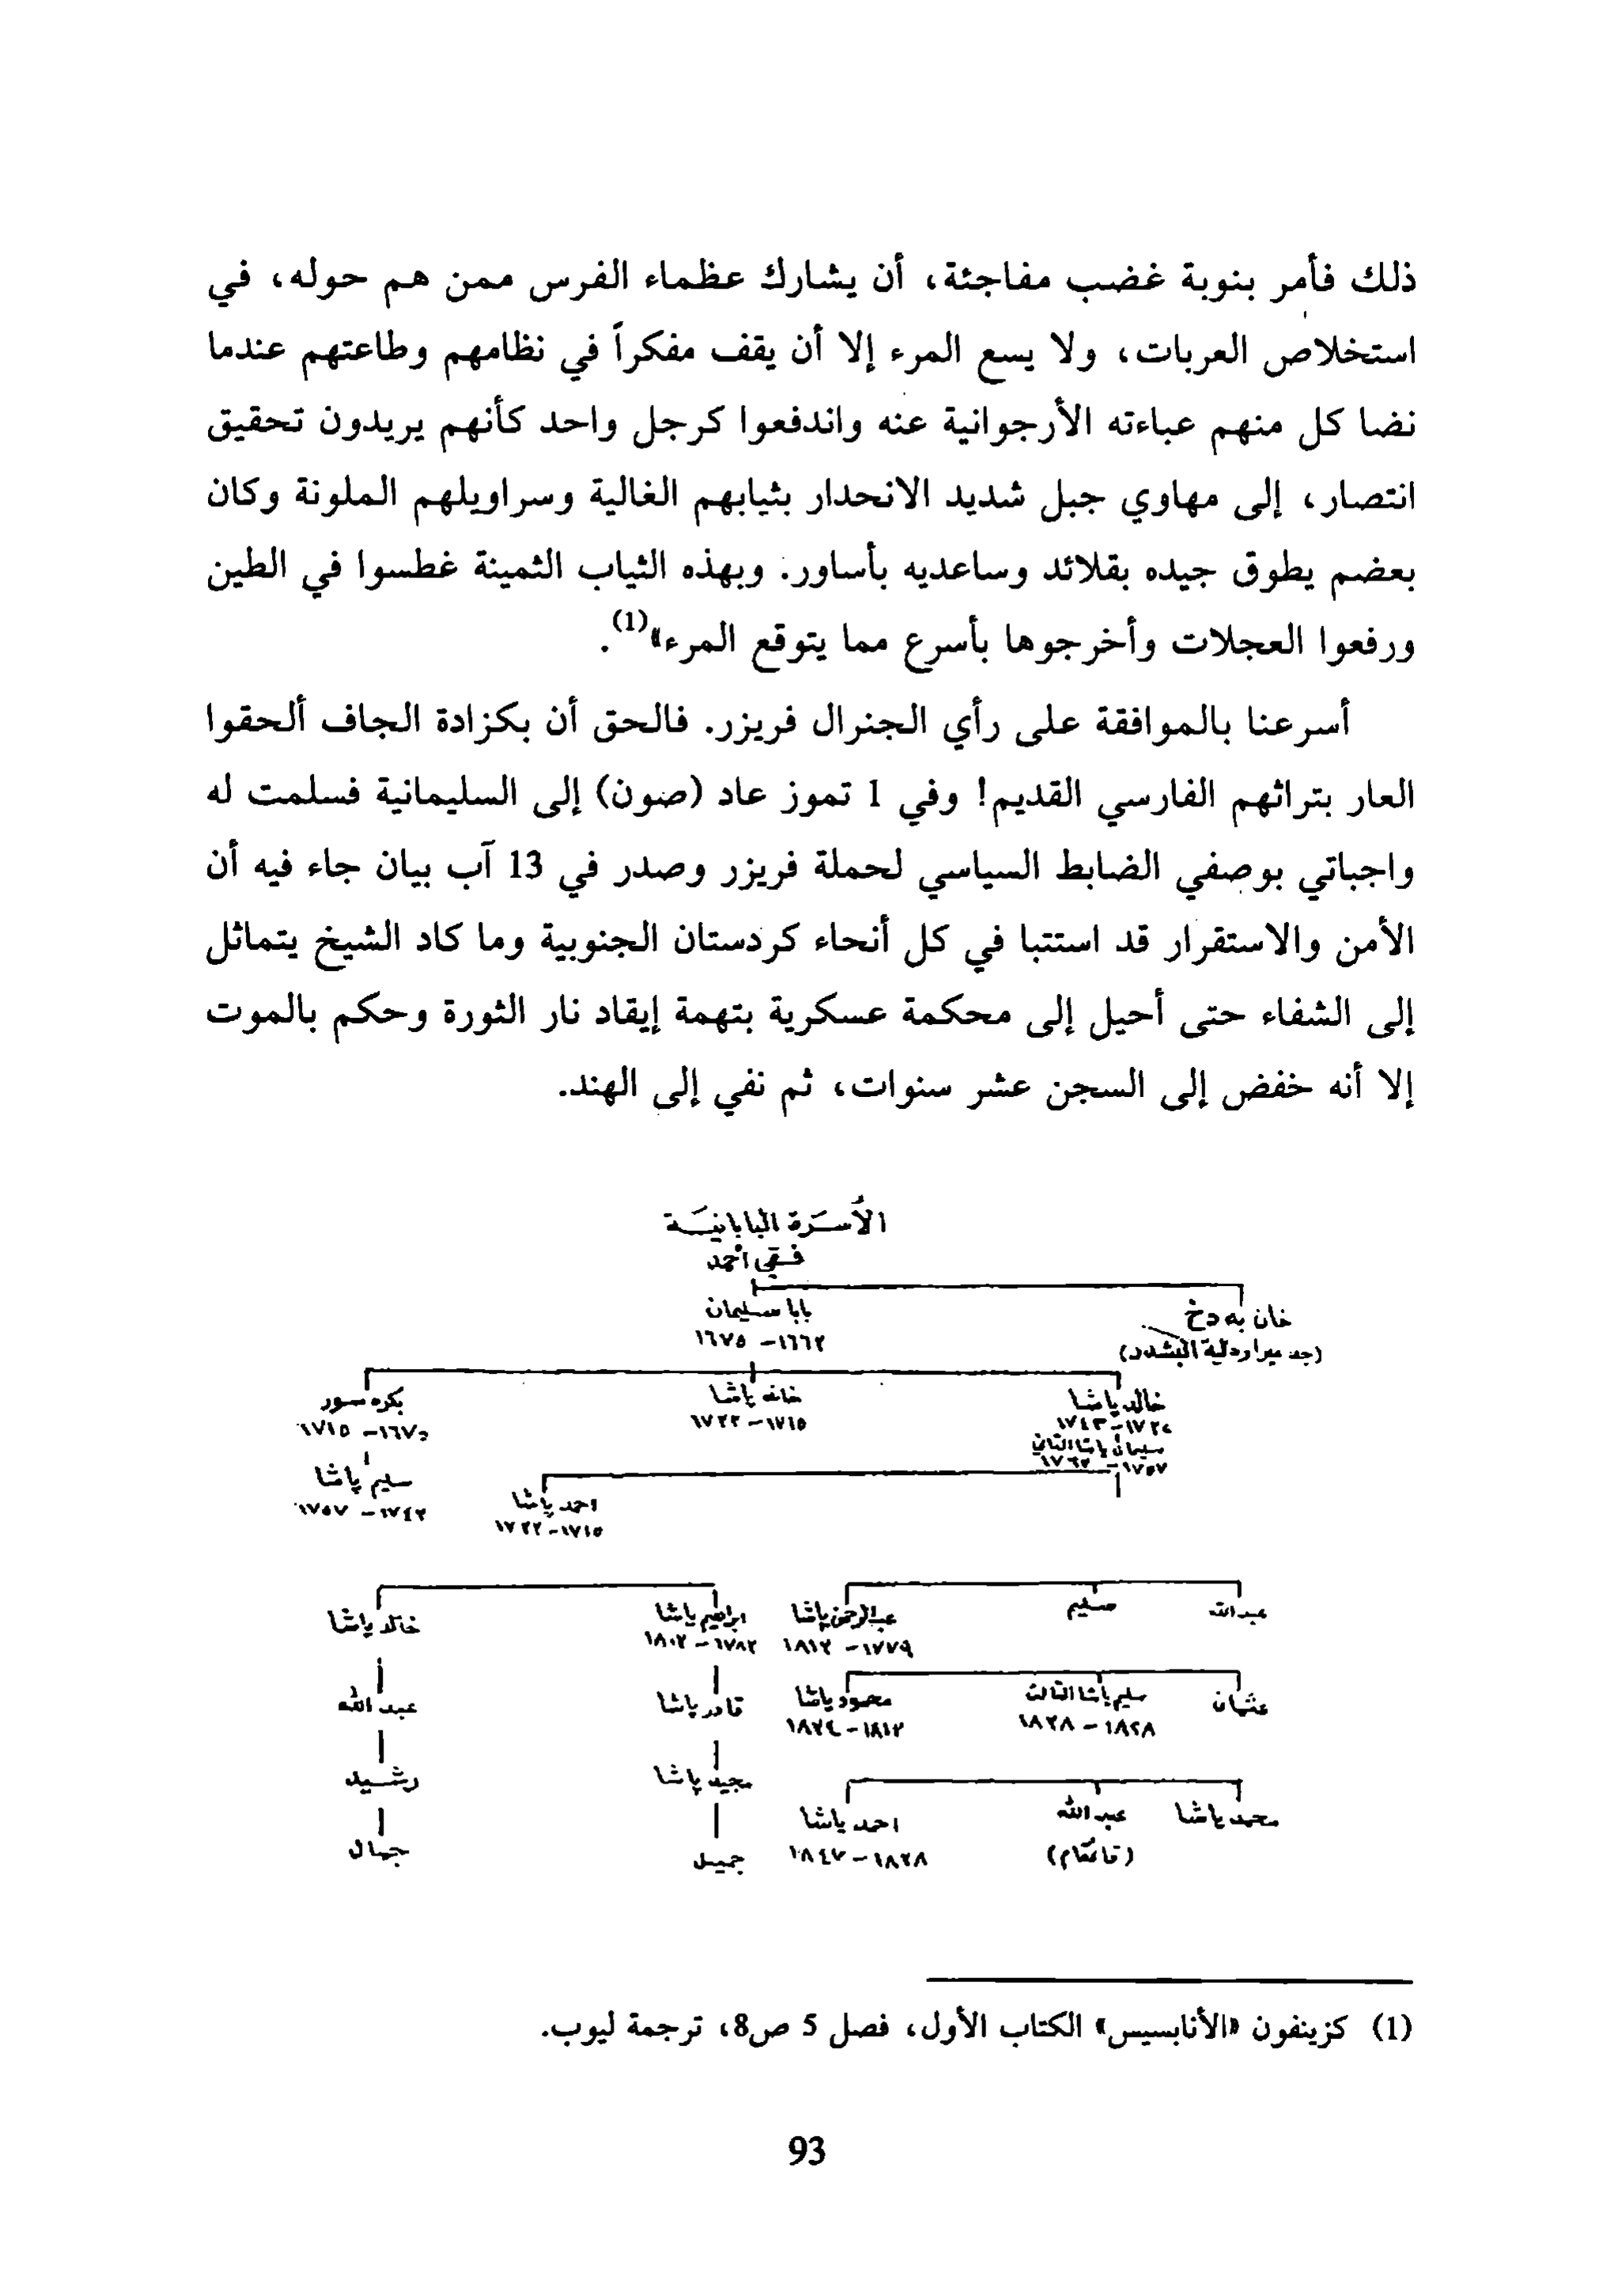 ذلك فأمر بنوبة غضب مفاجئة، أن يشارك عظماء الفرس ممن هم حوله، في
استخلاص العربات، ولا يسع المرء إلا أن يقف مفكراً في نظامهم وطاعتهم عندما
نضا كل منهم عباءته الأرجوانية عنه واندفعوا كرجل واحد كأنهم يريدون تحقيق
انتصار، إلى مهاوي جبل شديد الانحدار بثيابهم الغالية وسراويلهم الملونة وكان
بعضم يطوق جيده بقلائد وساعديه بأساور. وبهذه الثياب الثمينة غطسوا في الطين
ورفعوا العجلات وأخرجوها بأسرع مما يتوقع المرء»(1).
أسرعنا بالموافقة على رأي الجنرال فريزر. فالحق أن بكزادة الجاف ألحقوا
العار بتراثهم الفارسي القديم! وفي 1 تموز عاد (صون) إلى السليمانية فسلمت له
واجباتي بوصفي الضابط السياسي لحملة فريزر وصدر في 13 آب بيان جاء فيه أن
الأمن والاستقرار قد استتبا في كل أنحاء كردستان الجنوبية وما كاد الشيخ يتماثل
إلى الشفاء حتى أحيل إلى محكمة عسكرية بتهمة إيقاد نار الثورة وحكم بالموت
إلا أنه خفض إلى السجن عشر سنوات، ثم نفي إلى الهند.
الأسرة البابانية
فقي احمد
خان به دخ
بابا سليمان
(جد ميراودلية البشدر)
١٦٦٢ - ١٦٧٥
خالد پاشا
خانه پاشا
بكره سور
١٧١٥ - ١٧٢٢
سليمان پاشا الثاني
سليم پاشا
١٧٤٢ - ١٧٥٧
احمد پاشا
١٧١٥ - ١٧٢٢
عبدالله
سليم
عبدالرحمن پاشا
ابراهيم پاشا
خالد پاشا
١٧٧٩ - ١٨١٢
١٧٨٢ - ١٨٠٢
عثمان
سليم پاشا الثالث
محمود پاشا
قادر پاشا
عبد الله
١٨٢٨ - ١٨٣٨
رشيد
مجيد پاشا
محمد پاشا
عبد الله
احمد پاشا
(قائمقام)
١٨٣٨ - ١٨٤٧
جميل
جمال
(1) كزينفون «الأنابسيس» الكتاب الأول، فصل 5 ص8، ترجمة ليوب.
93